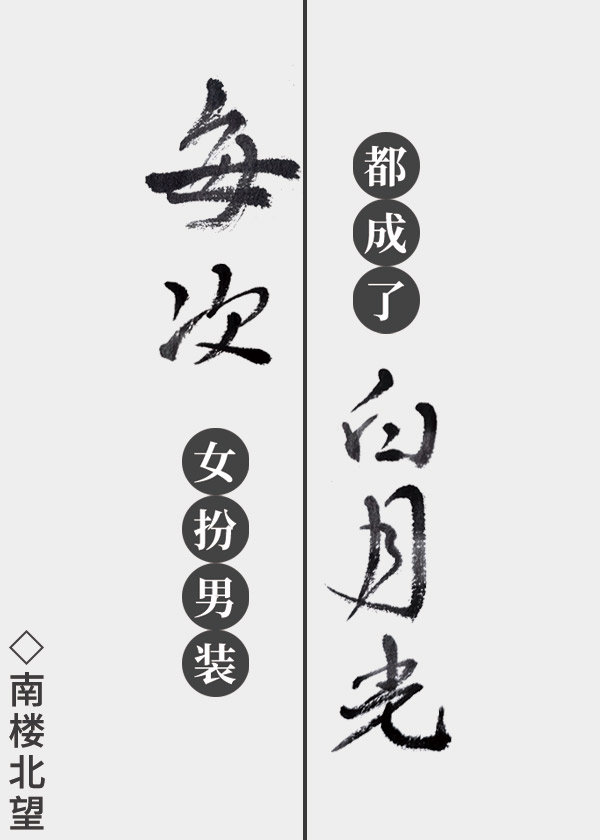 每次女扮男装
都成了白月光
◇南楼北望